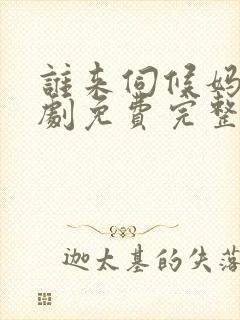 誰来伺候妈
劇免費完整
迦太基的失落